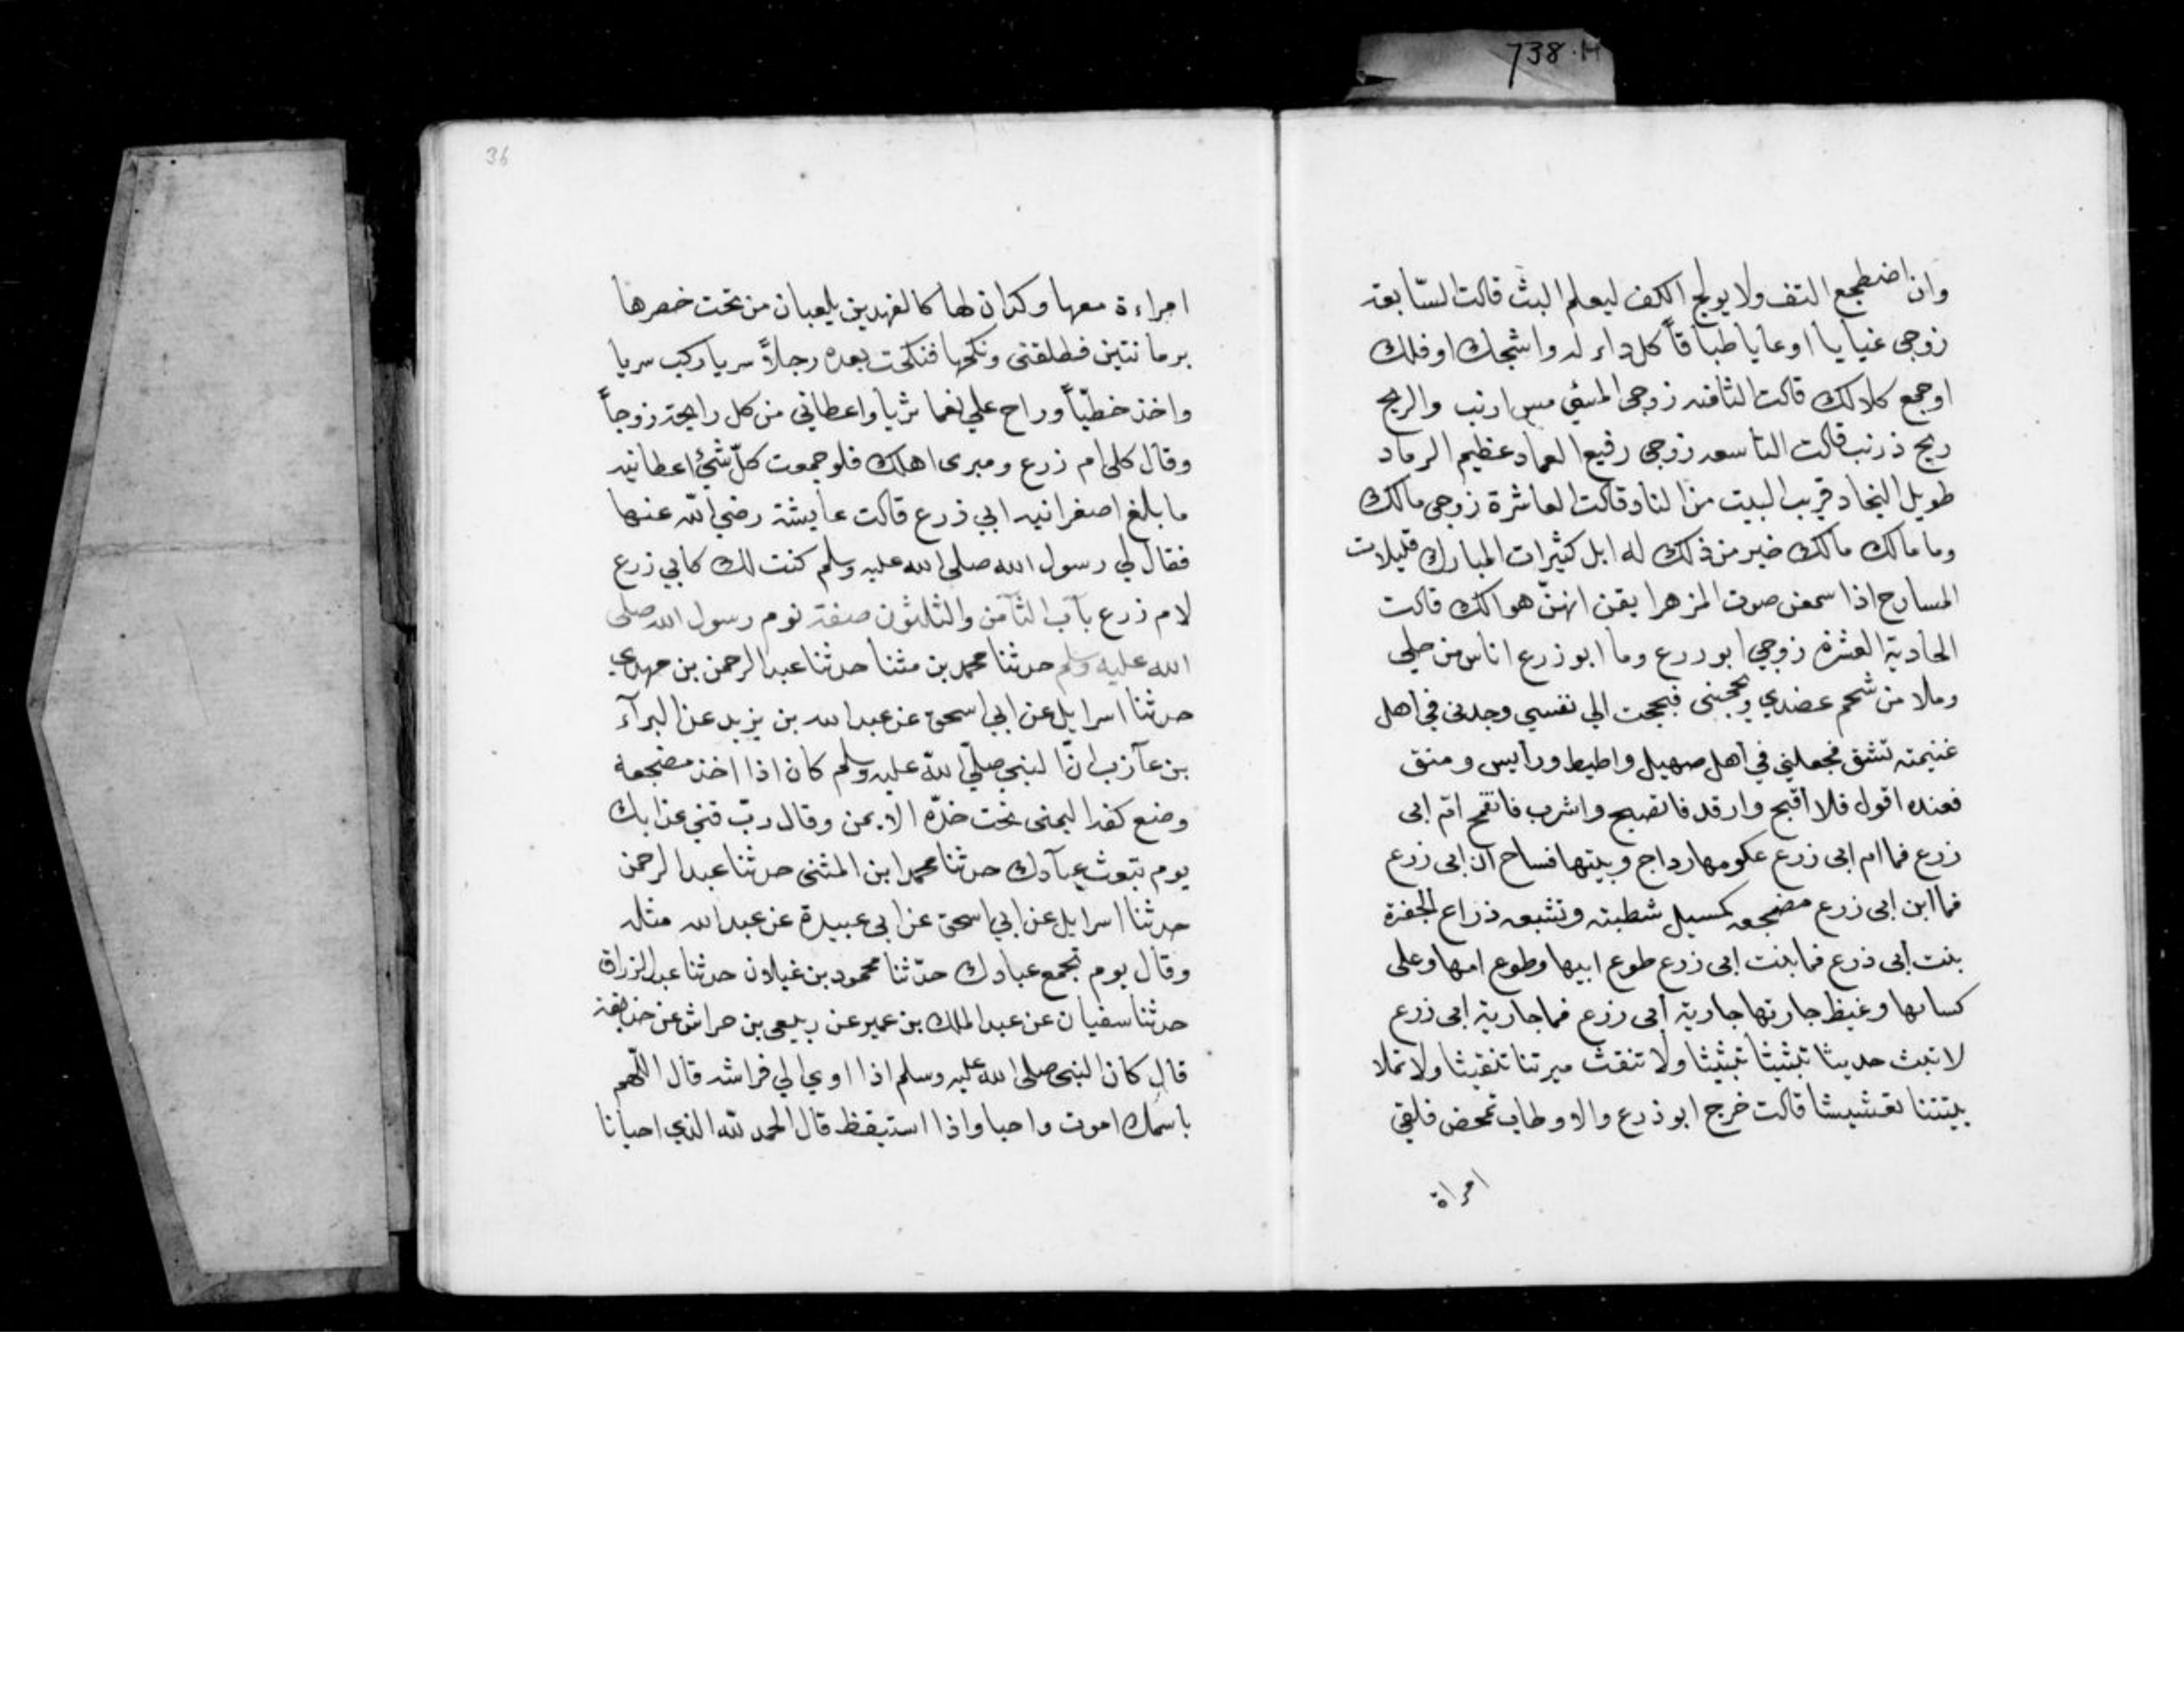 738.H
وان اضطجع التف ولا يولج الكف ليعلم البث قالت السّابعة
زوجى غيايا اوعايا طباقاً كل داء له واشجك او فلك
اوجمع كلالك قالت الثامنه زوجى المسّي مس ارنب والريح
ريح ذرنب قالت التاسعه زوجى رفيع العماد عظيم الرماد
طويل النجاد قريب البيت من الناد وقالت العاشرة زوجى مالك
وما مالك مالك خير من ذلك له ابل كثيرات المبارك قليلات
المسارح اذا سمعن صوت المزهر ايقن انهنّ هوالك قالت
الحادية العشرة زوجي ابو ررع وما ابو زرع اناس من حلي
وملا من شحم عضدي وبجحنى فبجحت الي نفسي وجدنى في اهل
غنيمته تشق فجعلني في اهل صهيل واطيط ورأيس ومنق
فعنده اقول فلا اقبح وارقد فاتصبح واشرب فاتقمح امّ ابى
زرع فما ام ابى زرع عكومها رداج وبيتها فساح ان ابى زرع
فما ابن ابى زرع مضجعه كمسيل شطبته وتشبعه ذراع الجفرة
بنت ابى ذرع فما بنت ابى زرع طوع ابيها وطوع امها وعلى
كسائها وغيظ جارتها جارية ابى رزع فما جارية ابى زرع
لا تبث حديثا تبثيثا تبثيثا ولا تنقث ميرتنا تنقيثا ولا تملا
بيتتنا تعشيشا قالت خرج ابو ذرع والاوطاب تمخض فلقي
امراة
36
امراءة معها وكدان لها كالفهدين يلعبان من تحت خصرها
برمانتين فطلقنى ونكحها فنكحت بعده رجلاً سريا ركب سريا
واخذ خطيّاً وراح علي نعما ثريا واعطاني من كل رايحة زوجاً
وقال كلى ام زرع وميرى اهلك فلو جمعت كلّ شئ اعطانيه
ما بلغ اصغر انيه ابي ذرع قالت عايشة رضي الله عنها
فقال لي رسول الله صلى الله عليه وسلم كنت لك كابي زرع
لام زرع بآب الثآمن والثلثون صفة نوم رسول الله صلى
الله عليه وسلم حدثنا محمد بن مثنا حدثنا عبد الرحمن بن مهدي
حدثنا اسرايل عن ابي اسحق عن عبد الله بن يزيد عن البرآء
بن عآزب انّ النبي صلّي الله عليه وسلم كان اذا اخذ مضجعه
وضع كفه اليمنى تحت خدّه الايمن وقال ربّ قني عذابك
يوم تبعث عبآدك حدثنا محمد ابن المثنى حدثنا عبد الرحمن
حدثنا اسرايل عن ابي اسحق عن ابى عبيدة عن عبد الله مثله
وقال يوم تجمع عبادك حدّثنا محمود بن غيلان حدثنا عبد الرزاق
حدثنا سفيان عن عبد الملك بن عمير عن ربيعى بن حراش عن حذيفة
قال كان النبى صلى الله عليه وسلم اذا اوي الي فراشه قال اللّهم
باسمك اموت واحيا واذا استيقظ قال الحمد لله الذي احيانا